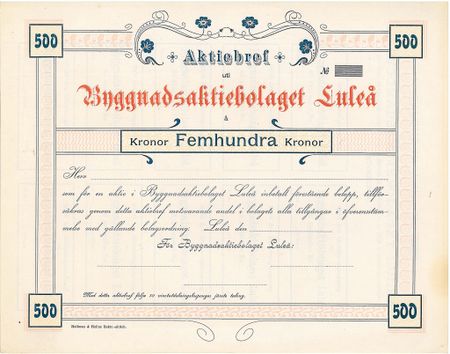 500 500
Aktiebref
uti
№
Byggnadsaktiebolaget Luleå
å
Kronor Femhundra Kronor
Herr
som för en aktie i Byggnadsaktiebolaget Luleå inbetalt förestående belopp, tillför-
säkras genom detta aktiebref motsvarande andel i bolagets alla tillgångar i öfverensstäm-
melse med gällande bolagsordning; Luleå den
För Byggnadsaktiebolaget Luleå:
Med detta aktiebref följa 20 vinstutdelningskuponger jämte talong.
500 500